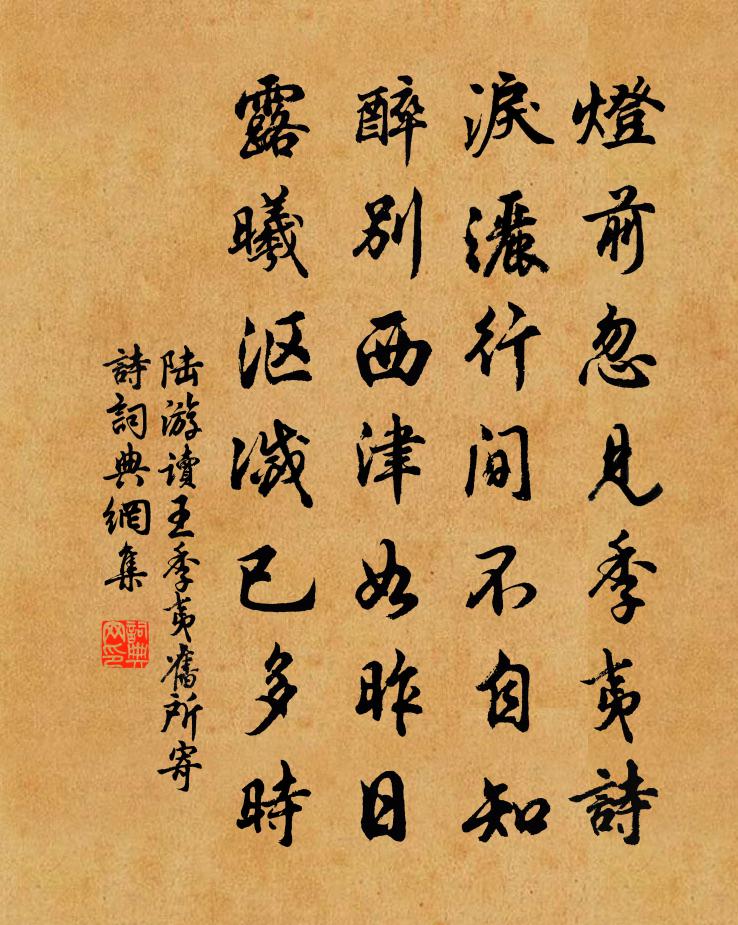 燈前忽見季夷詩
淚灑行間不自知
醉別西津如昨日
露曦漚滅已多時
陸游讀王季夷舊所寄
詩詞典網集
詞典網印